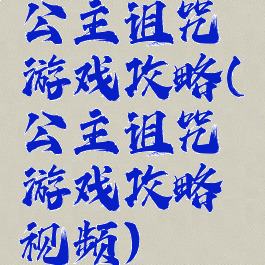 公主诅咒
游戏攻略(
公主诅咒
游戏攻略
视频)